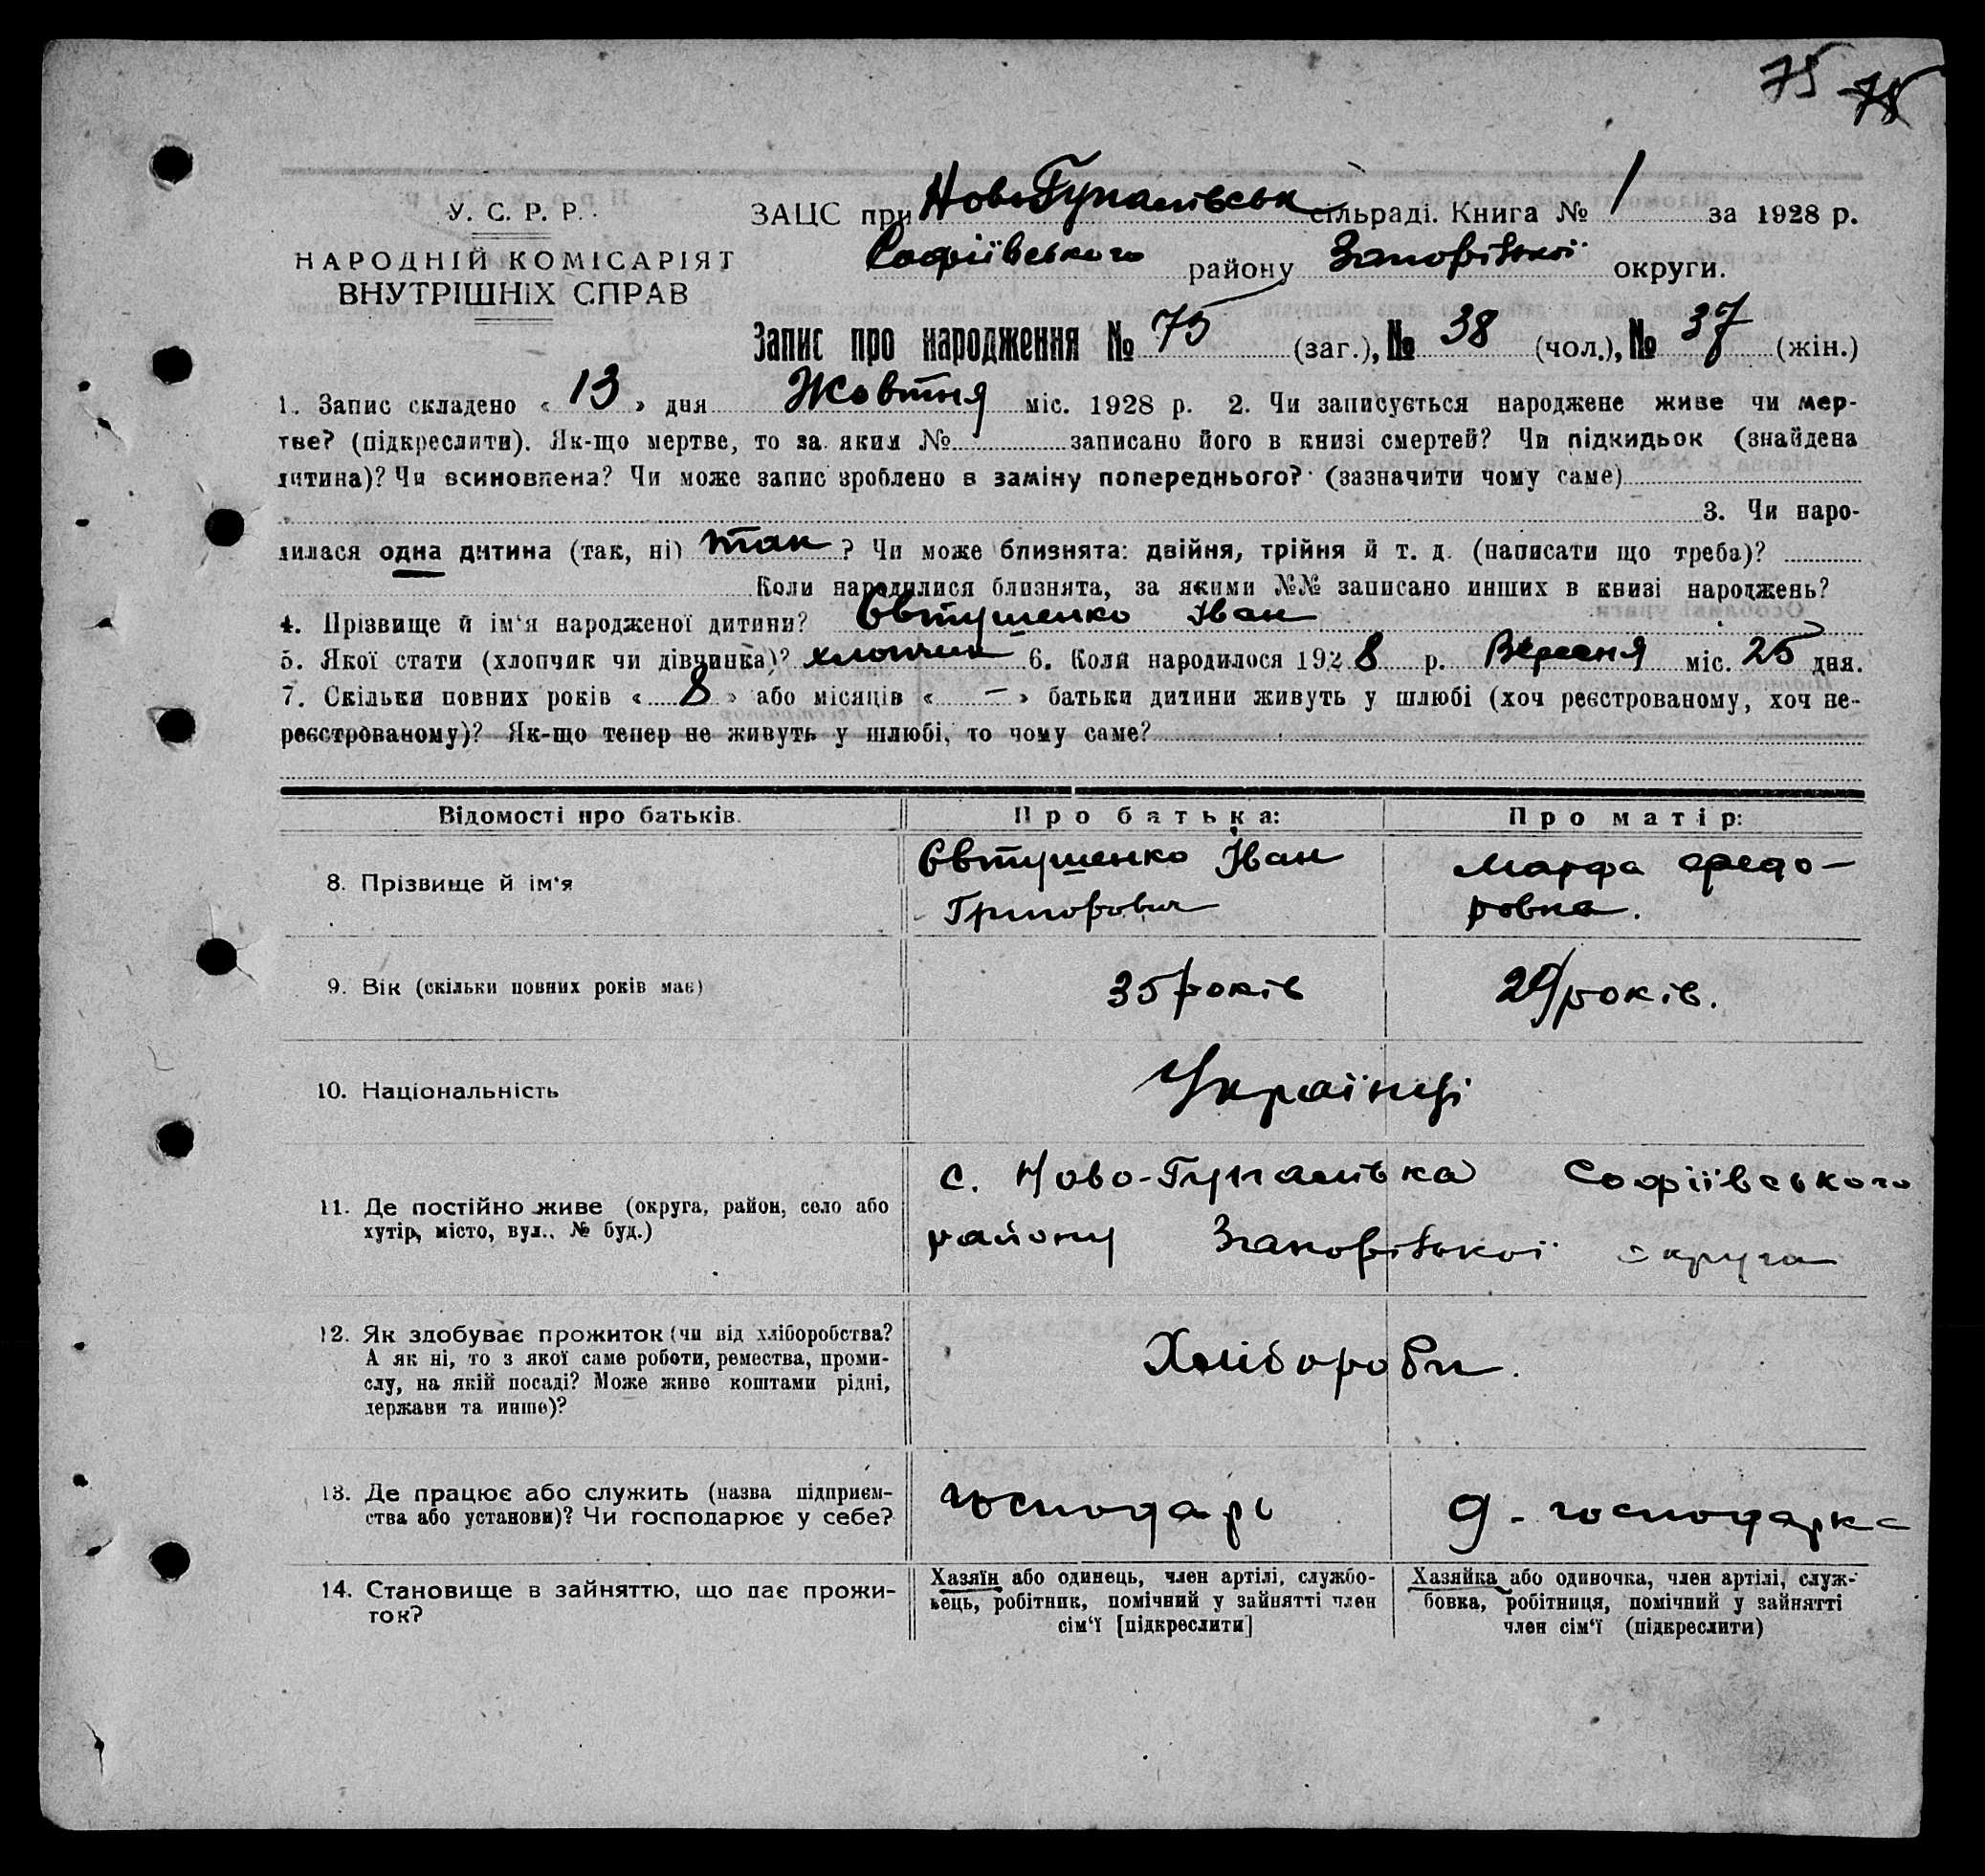 75 75
У. С. Р. Р.
НАРОДНІЙ КОМІСАРІЯТ
ВНУТРІШНІХ СПРАВ
ЗАЦС при НовоГупалівськ сільраді. Книга № 1 за 1928 р.
Софіївського району Запорізької округи.
Запис про народження № 75 (заг.), № 38 (чол.), № 37 (жін.)
1. Запис складено « 13 » дня Жовтня міс. 1928 р. 2. Чи записується народжене живе чи мер-
тве? (підкреслити). Як-що мертве, то за яким № записано його в книзі смертей? Чи підкидьок (знайдена
дитина)? Чи всиновлена? Чи може запис зроблено в заміну попереднього? (зазначити чому саме)
3. Чи наро-
дилася одна дитина (так, ні) так ? Чи може близнята: двійня, трійня й т. д. (написати що треба)?
Коли народилися близнята, за якими №№ записано инших в книзі народжень?
4. Прізвище й ім'я народженої дитини? Євтушенко Іван
5. Якої стати (хлопчик чи дівчинка)? хлопчик 6. Коли народилося 1928 р. Вересня міс. 25 дня.
7. Скільки повних років « 8 » або місяців « — » батьки дитини живуть у шлюбі (хоч реєстрованому, хоч не-
реєстрованому)? Як-що тепер не живуть у шлюбі, то чому саме?
Відомості про батьків. Про батька: Про матір:
8. Прізвище й ім'я Євтушенко Іван Марфа Федо-
Григорович ровна.
9. Вік (скільки повних років має) 35 років 29 років.
10. Національність Українці
с. Ново-Гупалівка Софіївського
11. Де постійно живе (округа, район, село або
хутір, місто, вул., № буд.) району Запорізької округа
12. Як здобуває прожиток (чи від хліборобства? Хлібороби.
А як ні, то з якої саме роботи, ремества, проми-
слу, на якій посаді? Може живе коштами рідні,
держави та инше)?
13. Де працює або служить (назва підприєм- господарь д-господарка
ства або установи)? Чи господарює у себе?
14. Становище в зайняттю, що дає прожи-
ток?
Хазяїн або одинець, член артілі, службо-
вець, робітник, помічний у зайнятті член
сім'ї [підкреслити]
Хазяйка або одиночка, член артілі, служ-
бовка, робітниця, помічний у зайнятті
член сім'ї (підкреслити)